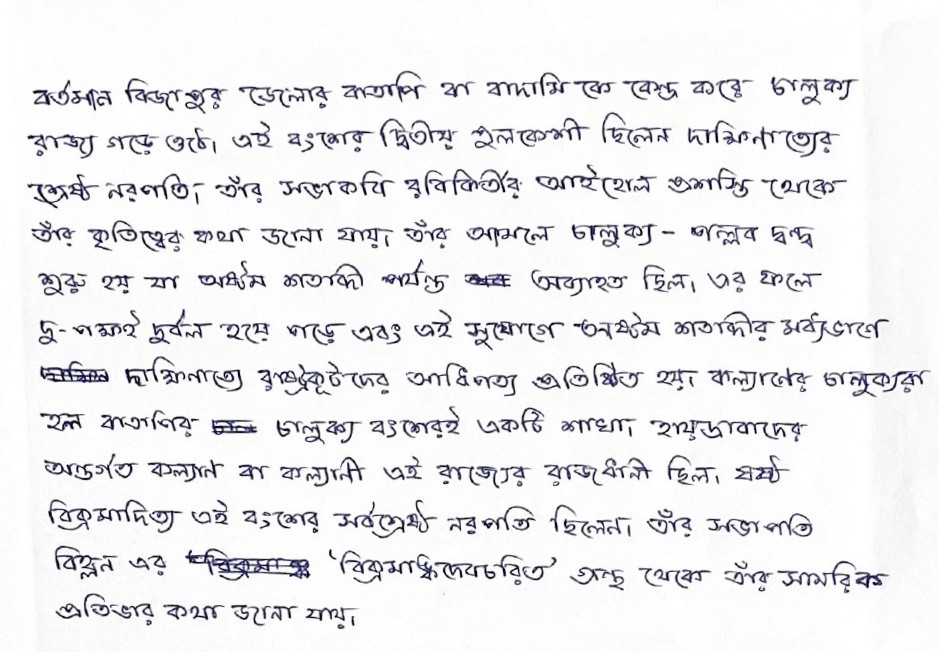 বর্তমান বিজাপুর জেলার বাতাপি বা বাদামি কে কেন্দ্র করে চালুক্য
রাজ্য গড়ে ওঠে। এই বংশের দ্বিতীয় পুলকেশী ছিলেন দাক্ষিণাত্যের
শ্রেষ্ঠ নরপতি। তাঁর সভাকবি রবিকির্তীর আইহোল প্রশস্তি থেকে
তাঁর কৃতিত্বের কথা জানা যায়। তাঁর আমলে চালুক্য - পল্লব দ্বন্দ্ব
শুরু হয় যা অষ্টম শতাব্দী পর্যন্ত অব্যাহত ছিল। এর ফলে
দু-পক্ষই দুর্বল হয়ে পড়ে এবং এই সুযোগে অষ্টম শতাব্দীর মধ্যভাগে
দাক্ষিনাত্যে রাষ্ট্রকূটদের আধিপত্য প্রতিষ্ঠিত হয়। কল্যাণের চালুক্যরা
হল বাতাপির চালুক্য বংশেরই একটি শাখা। হায়দ্রাবাদের
অন্তর্গত কল্যান বা কল্যানী এই রাজ্যের রাজধানী ছিল। ষষ্ঠ
বিক্রমাদিত্য এই বংশের সর্বশ্রেষ্ঠ নরপতি ছিলেন। তাঁর সভাপতি
বিহ্লন এর 'বিক্রমাঙ্কদেবচরিত' গ্রন্থ থেকে তাঁর সামরিক
প্রতিভার কথা জানা যায়।